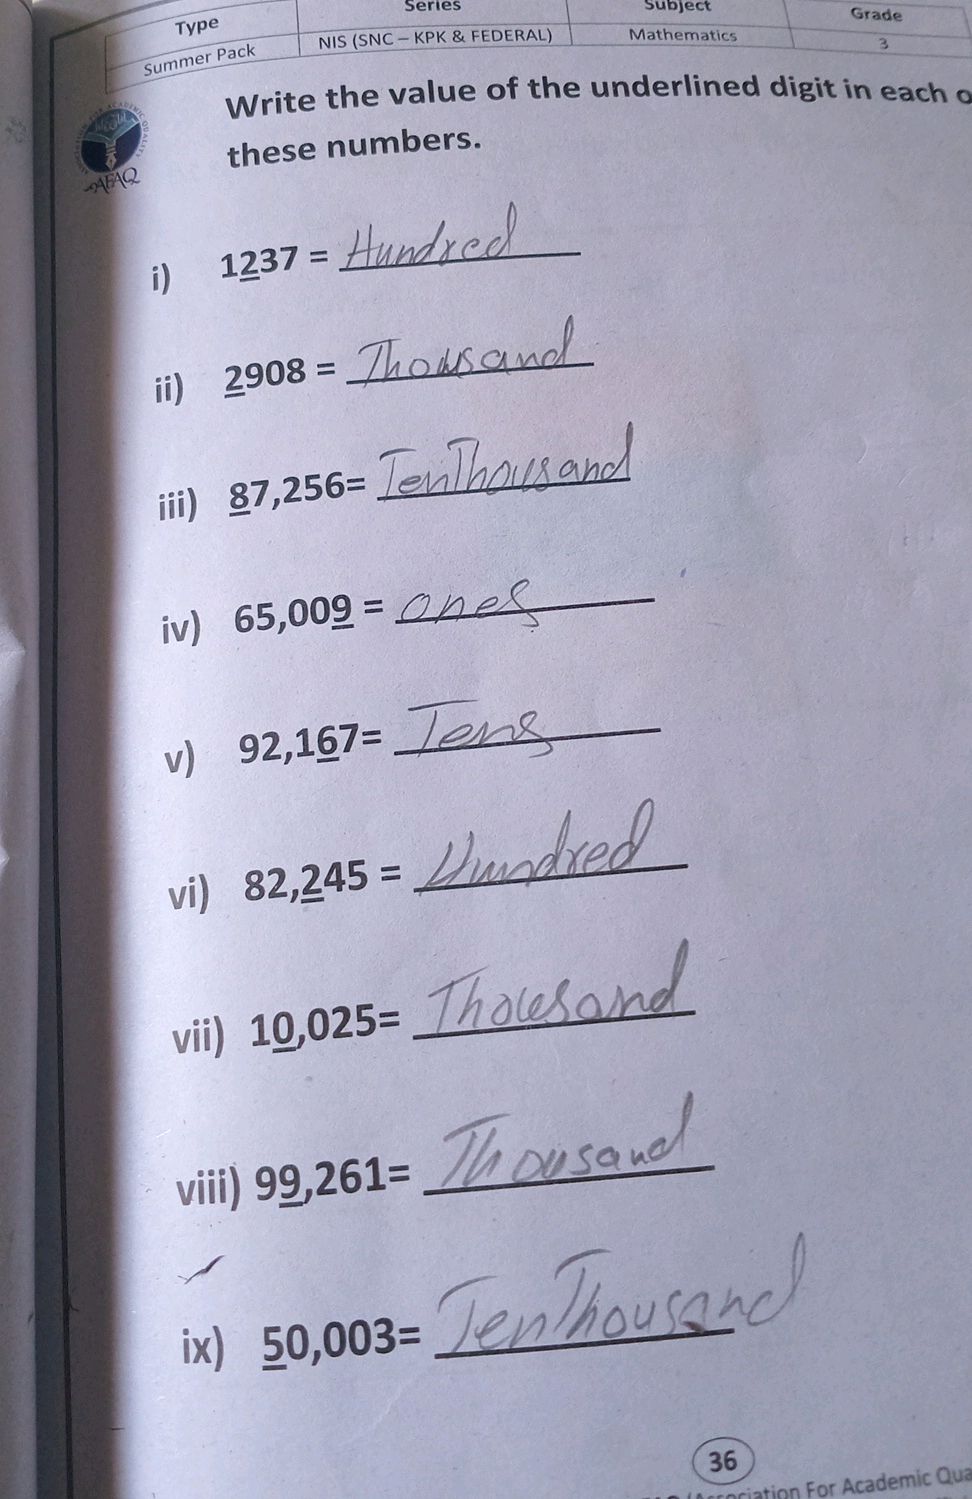 Type Series Subject Grade
Summer Pack NIS (SNC – KPK & FEDERAL) Mathematics 3
Write the value of the underlined digit in each
these numbers.
AFAQ
i) 1237 = Hundred
ii) 2908 = Thousand
iii) 87,256= TenThousand
iv) 65,009 = ones
v) 92,167= Tens
vi) 82,245 = Hundred
vii) 10,025= Thousand
viii) 99,261= Thousand
ix) 50,003= TenThousand
36
For Academic